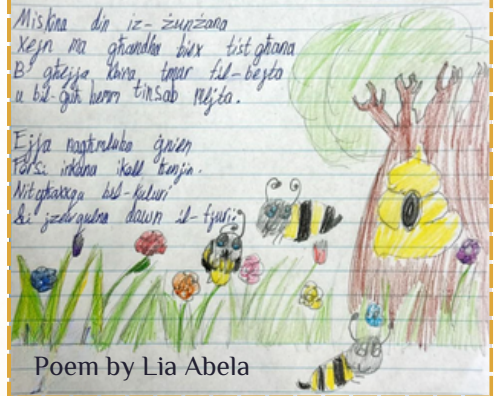 Miskina din iż-żunżana
Xejn ma għandha biex tistgħana
B' għejja kbira tmur fil-bejta
u bil-guħ hemm tinsab mejta.
Ejja nagħmlulha ġnien
Forsi inkunu ikoll henjin.
Nitgħaxxqu bil-kuluri
li jżewqulna dawn il-fjuri.
Poem by Lia Abela